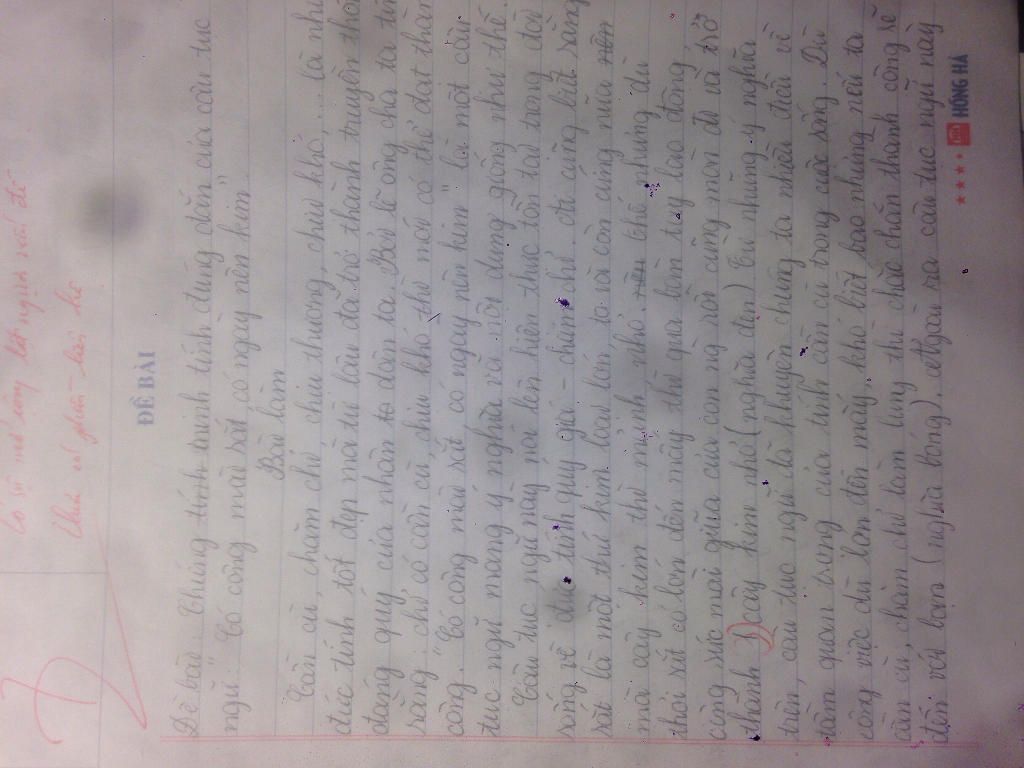 7
Có sử
vấn đề
ĐỀ BÀI
Đề bài: Chứng minh tính đúng đắn của câu tục
ngữ: "Có công mài sắt, có ngày nên kim".
Bài làm
Cần cù, chăm chỉ, chịu thương, chịu khó,... là nh
đức tính tốt đẹp mà từ lâu đã trở thành truyền thố
đáng quý của nhân dân ta. Bởi lẽ ông cha ta ti
rằng, chỉ có cần cù, chịu khó thì mới có thể đạt thàn
công. "Có công mài sắt có ngày nên kim" là một câu
tục ngữ mang ý nghĩa và nội dung giống như thế.
Câu tục ngữ này nói lên hiện thực tồn tại trong đời
sống về đức tính quý giá - chăm chỉ. ai cũng biết rằng
sắt là một thứ kim loại lớn, to và còn cứng nữa
mà cây kim thì mỏng, nhỏ. thế nhưng dù
thỏi sắt có lớn đến mấy thì qua bàn tay lao động,
công sức mài giũa của con người cũng mòn đi và trở
thành cây kim nhỏ (nghĩa đen) Từ những ý nghĩa
trên, câu tục ngữ đã khuyên chúng ta nhiều điều về
tầm quan trọng của tính cần cù trong cuộc sống. Dù
công việc dù lớn đến mấy, khó biết bao nhưng nếu ta
cần cù, chăm chỉ làm lụng thì chắc chắn thành công sẽ
đến với bạn (nghĩa bóng). Ngoài ra câu tục ngữ này
★★★★ HỒNG HÀ